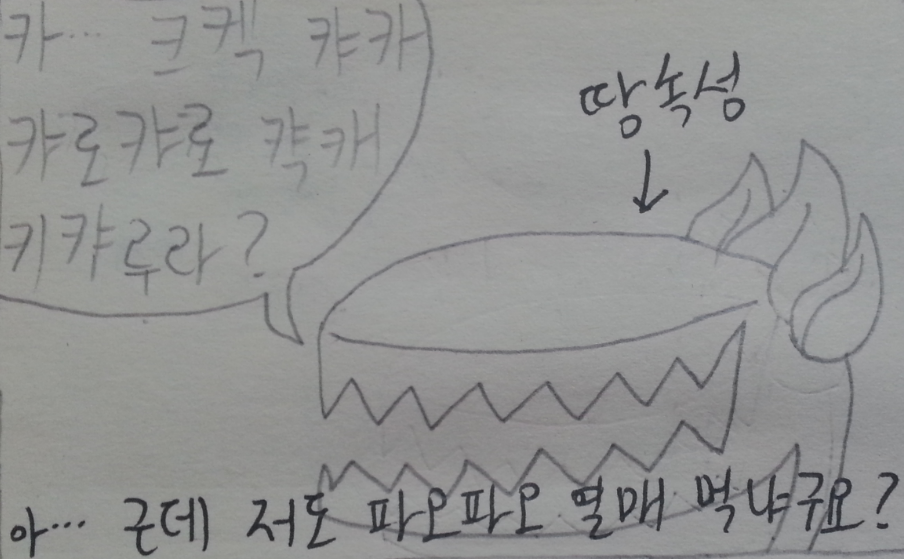 카… 크켁 캬카
캬로캬로 캭캐
키캬루라?
땅녹성
↓
아… 근데 저도 파오파오 열매 먹냐구요?